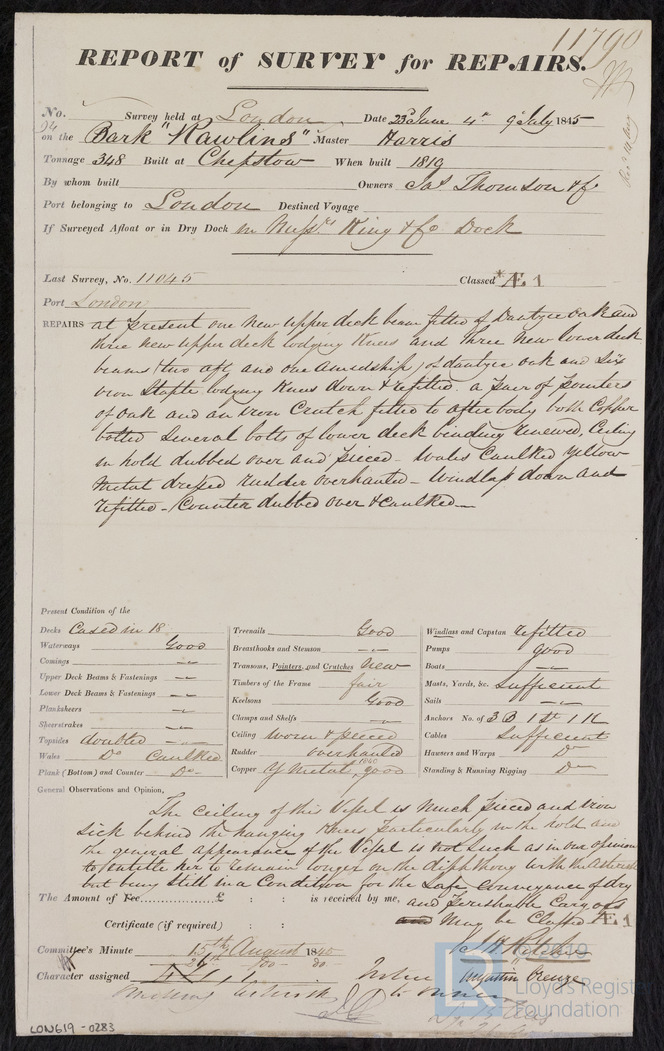 11790
REPORT of SURVEY for REPAIRS.
No. 94 Survey held at London Date 23d June 4th 9th July 1845
on the Bark "Rawlins" Master Harris
Tonnage 348 Built at Chepstow When built 1819
By whom built Owners Jas Thomson & Co
Port belonging to London Destined Voyage
If Surveyed Afloat or in Dry Dock in Messrs King & Co Dock
Last Survey, No. 11045 Classed *Æ 1
Port London
REPAIRS at present one new upper deck beam fitted of Dantzic oak and
three new upper deck lodging Knees and three new lower deck
beams (two aft and one amidship) of dantzic oak and six
iron staple lodging Knees down & refitted. a pair of pointers
of oak and an iron Crutch fitted to after body both Copper
bolted several bolts of lower deck binding renewed, Ceiling
in hold dubbed over and pieced - Wales Caulked Yellow
Metal dressed rudder overhauled - Windlass down and
refitted - Counter dubbed over & caulked -
Present Condition of the
Decks Cased in 18
Waterways Good
Comings
Upper Deck Beams & Fastenings
Lower Deck Beams & Fastenings
Planksheers
Sheerstrakes
Topsides doubled
Wales Do Caulked
Plank (Bottom) and Counter Do
Treenails Good
Breasthooks and Stemson
Transoms, Pointers, and Crutches New
Timbers of the Frame fair
Keelsons Good
Clamps and Shelfs
Ceiling worn & pieced
Rudder overhauled
Copper Y Metal 1840 good
Windlass and Capstan refitted
Pumps good
Boats
Masts, Yards, &c. Sufficient
Sails
Anchors No. of 3 B 1 St 1 K
Cables Sufficient
Hawsers and Warps Do
Standing & Running Rigging Do
General Observations and Opinion,
The Ceiling of this Vessel is much pieced and iron
sick behind the hanging Knees particularly in the hold and
the general appearance of the Vessel is not such as in our opinion
to entitle her to remain longer on the diphthong with the Asterisk
but being still in a Condition for the safe conveyance of dry
The Amount of Fee £ : : is received by me, and perishable Cargoes
may be Classed Æ 1
Certificate (if required) : :
Committee's Minute 15th August 1845
Character assigned Æ 1
Martin
© 2019
Lloyd's Register
Foundation
LON619-0283